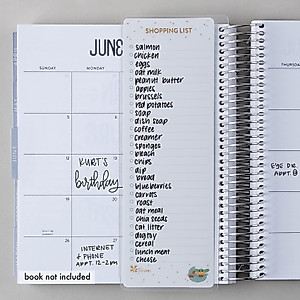 JUNE
SUNDAY
MONDAY
5
6
12
13
KURT'S
birthday
19
20
26
27
INTERNET
+ PHONE
APPT. 12-2pm
SHOPPING LIST
salmon
chicken
eggs
oat milk
peanut butter
apples
brussels
red potatoes
soap
dish soap
coffee
creamer
sponges
bleach
chips
dip
bread
blueberries
carrots
roast
oat meal
chia seeds
cat litter
dog toy
cereal
lunch meat
cheese
EYE DR.
APPT.
book not included